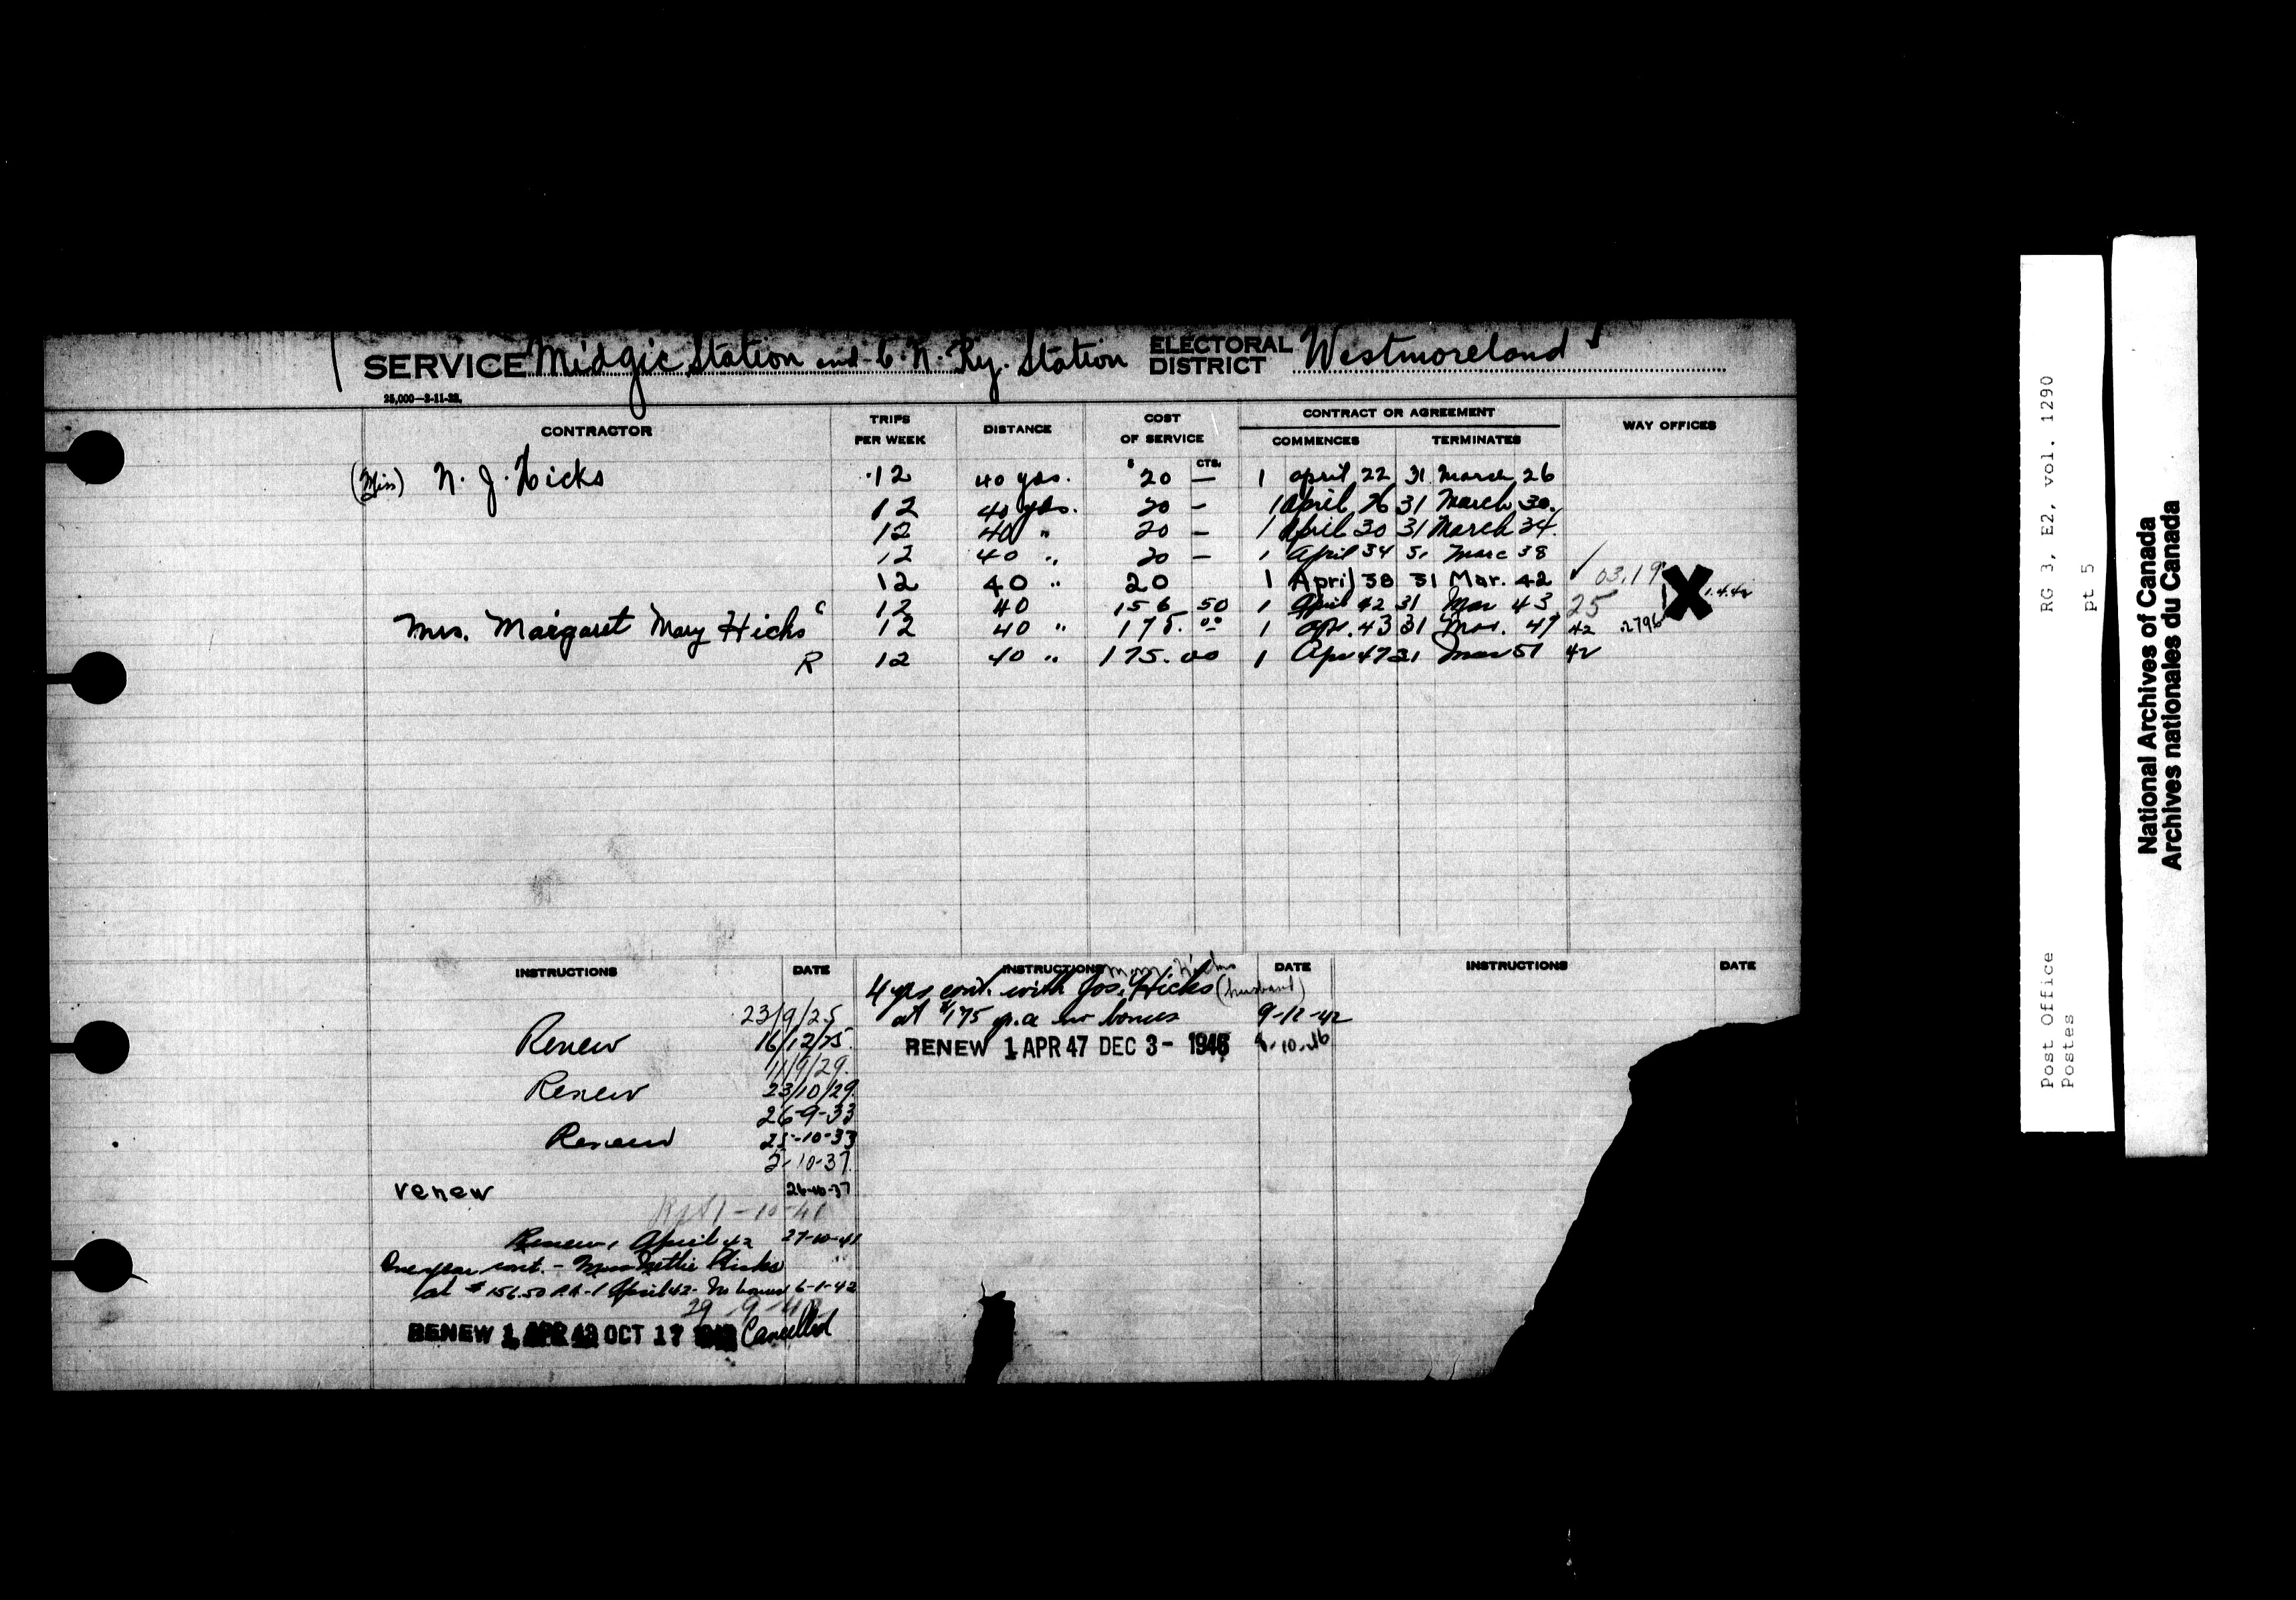 SERVICE Midgic Station and C. N. Ry. Station ELECTORAL DISTRICT Westmoreland
25,000—2-11-22.
CONTRACTOR TRIPS PER WEEK DISTANCE COST OF SERVICE CONTRACT OR AGREEMENT COMMENCES TERMINATES WAY OFFICES
$ CTS.
(Miss) N. J. Hicks 12 40 yds. 20 — 1 April 22 31 March 26
12 40 yds. 20 - 1 April 26 31 March 30.
12 40 " 20 — 1 April 30 31 March 34.
12 40 " 20 — 1 April 34 31 Marc 38
12 40 " 20 1 April 38 31 Mar. 42 ✓ 03.19
C 12 40 156 50 1 April 42 31 Mar 43 25 X 1.4.42
Mrs. Margaret Mary Hicks 12 40 " 175.00 1 Apr. 43 31 Mar. 47 42 2796
R 12 40 " 175.00 1 Apr 47 31 Mar 51 42
INSTRUCTIONS DATE INSTRUCTIONS DATE INSTRUCTIONS DATE
4 yrs cont. with Jos. Hicks (husband)
at $175 p.a no bonus 9-12-42
RENEW 1 APR 47 DEC 3- 1946
23/9/25
Renew 16/12/25.
11/9/29.
Renew 23/10/29
26-9-33
Renew 25-10-33
2-10-37.
renew 26-10-37
1-10-41
Renew 1 April 42 27-10-41
One year cont. - Miss Nettie Hicks
at $156.50 P.A. - 1 April 42 - No bonus 6-1-42
29-9-42
RENEW 1 APR 43 OCT 17 Cancelled
Post Office RG 3, E2, vol. 1290
Postes pt 5
National Archives of Canada
Archives nationales du Canada